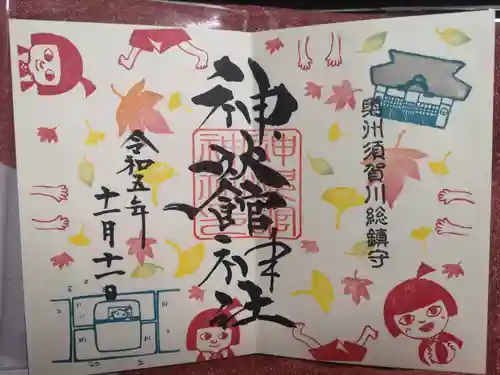 奥州須賀川総鎮守
神炊館神社
令和五年
十一月十一日